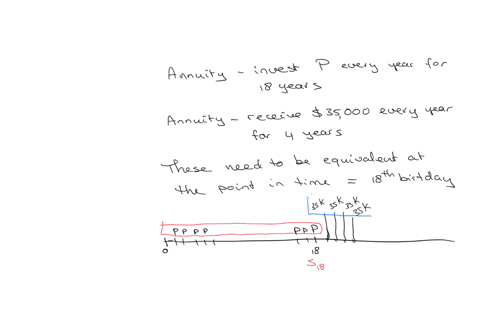 Annuity - invest P every year for
18 years
Annuity - receive $35,000 every year
for 4 years
These need to be equivalent at
the point in time = 18th birtday
35K 35K 35K 35K
P P P P P P P
0 18
S18